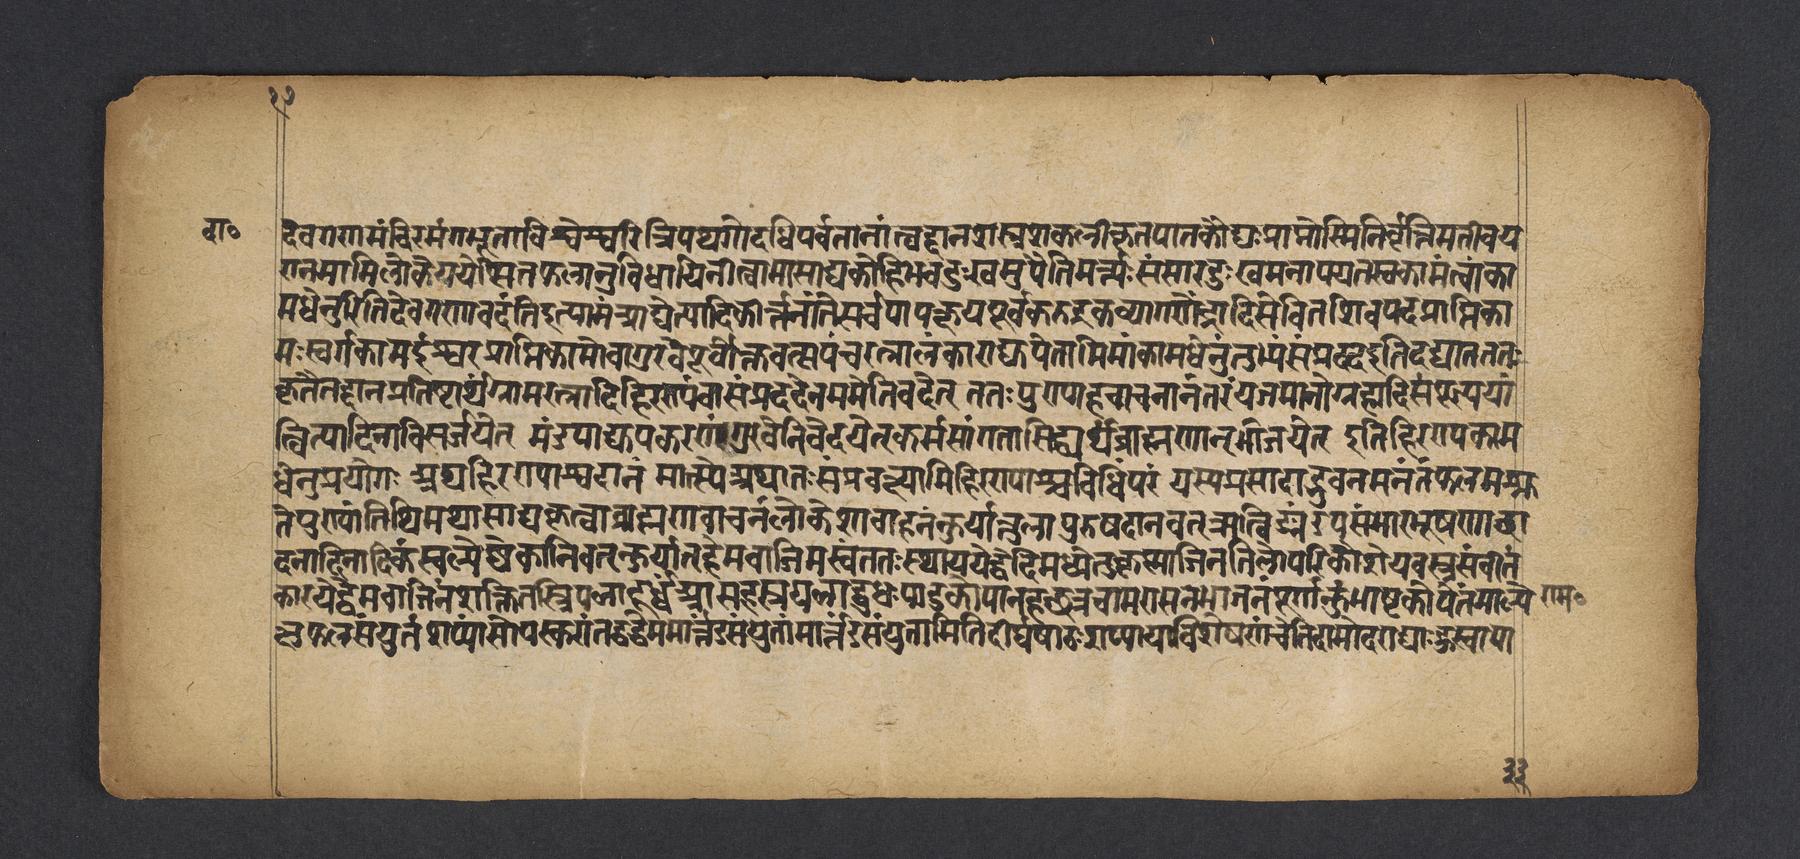 दा॰
देवगणामंचिरमंगभूताविश्वेश्वरित्रिपथगोदधिपर्वतानां त्वद्दानशस्त्रशकलीकृतपातकौघःप्राप्तोस्मिनिर्वृत्तिमतीवप
रांनमामिलोकेयथेप्सितफलानुविधायिनीत्वामासाद्यकोहिभवदुःखमुपैतिमर्त्यःसंसारदुःखमनापयतस्वकामंत्वांका
मधेनुमितिदेवगणावदंतिइत्यामंत्र्याद्येत्यादिकीर्त्तनांतेसर्वपापक्षयपूर्वक
मःस्वर्गकामईश्वरप्राप्तिकामोवागुरवे रत्नालंकाराद्युपेतामिमांकामधेनुंतुभ्यंसंप्रददइतिदद्यात्ततः
कृतैतद्दानप्रतिष्ठार्थंग्रामरत्नादिहिरण्यंवासंप्रददेनममेतिवदेत् ततःपुण्याहवाचनानंतरंयजमानोग्रहादिसंपूज्ययां
त्वित्यादिनाविसर्जयेत् मंडपाद्युपकरणंगुरवेनिवेदयेत्कर्मसांगतासिद्ध्यर्थंब्राह्मणान्भोजयेत् इतिहिरण्यकाम
धेनुप्रयोगः अथहिरण्याश्वदानं मात्स्येअथातःसंप्रवक्ष्यामिहिरण्याश्वविधिंपरं यस्यप्रसादाद्भुवनमनंतंफलमश्नु
तेपुण्यांतिथिमथासाद्यकृत्वाब्राह्मणवाचनंलोकेशावाहनंकुर्यात्तुलापुरुषदानवत्ऋत्विङ्मंडपसंभारभूषणाच्छा
दनादिनादिकं स्वल्पेष्वेकाग्निवत्कुर्यात्हेमवाजिमखंततःस्थापयेद्वेदिमध्येतुकृष्णाजिनतिलोपरिकौशेयवस्त्रसंवीतं
कारयेद्धेमवाजिनंशक्तितस्त्रिपलादूर्ध्वंआसहस्रपलाद्बुधःपादुकोपानहछत्रचामरासनभाजनं पूर्णकुंभाष्टकोपेतंमाल्ये राम॰
क्षुफलसंयुतं शय्यांसोपस्करांतद्वद्धेममार्त्तंडसंयुतामार्त्तंडसंयुतामितिदीर्घपाठःशय्यायाविशेषणंचेति
३३